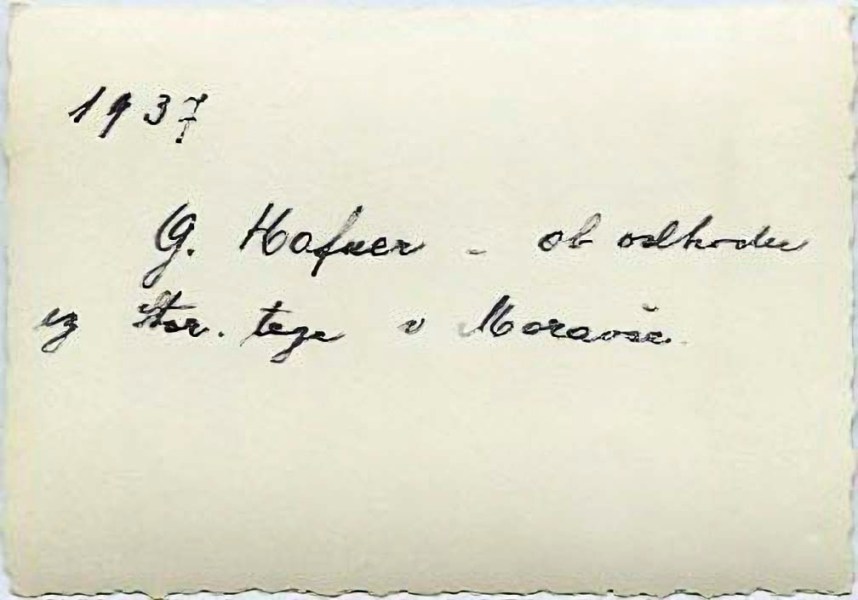 1937
G. Hafner - ob odhodu
iz Star. trga v Moravče.